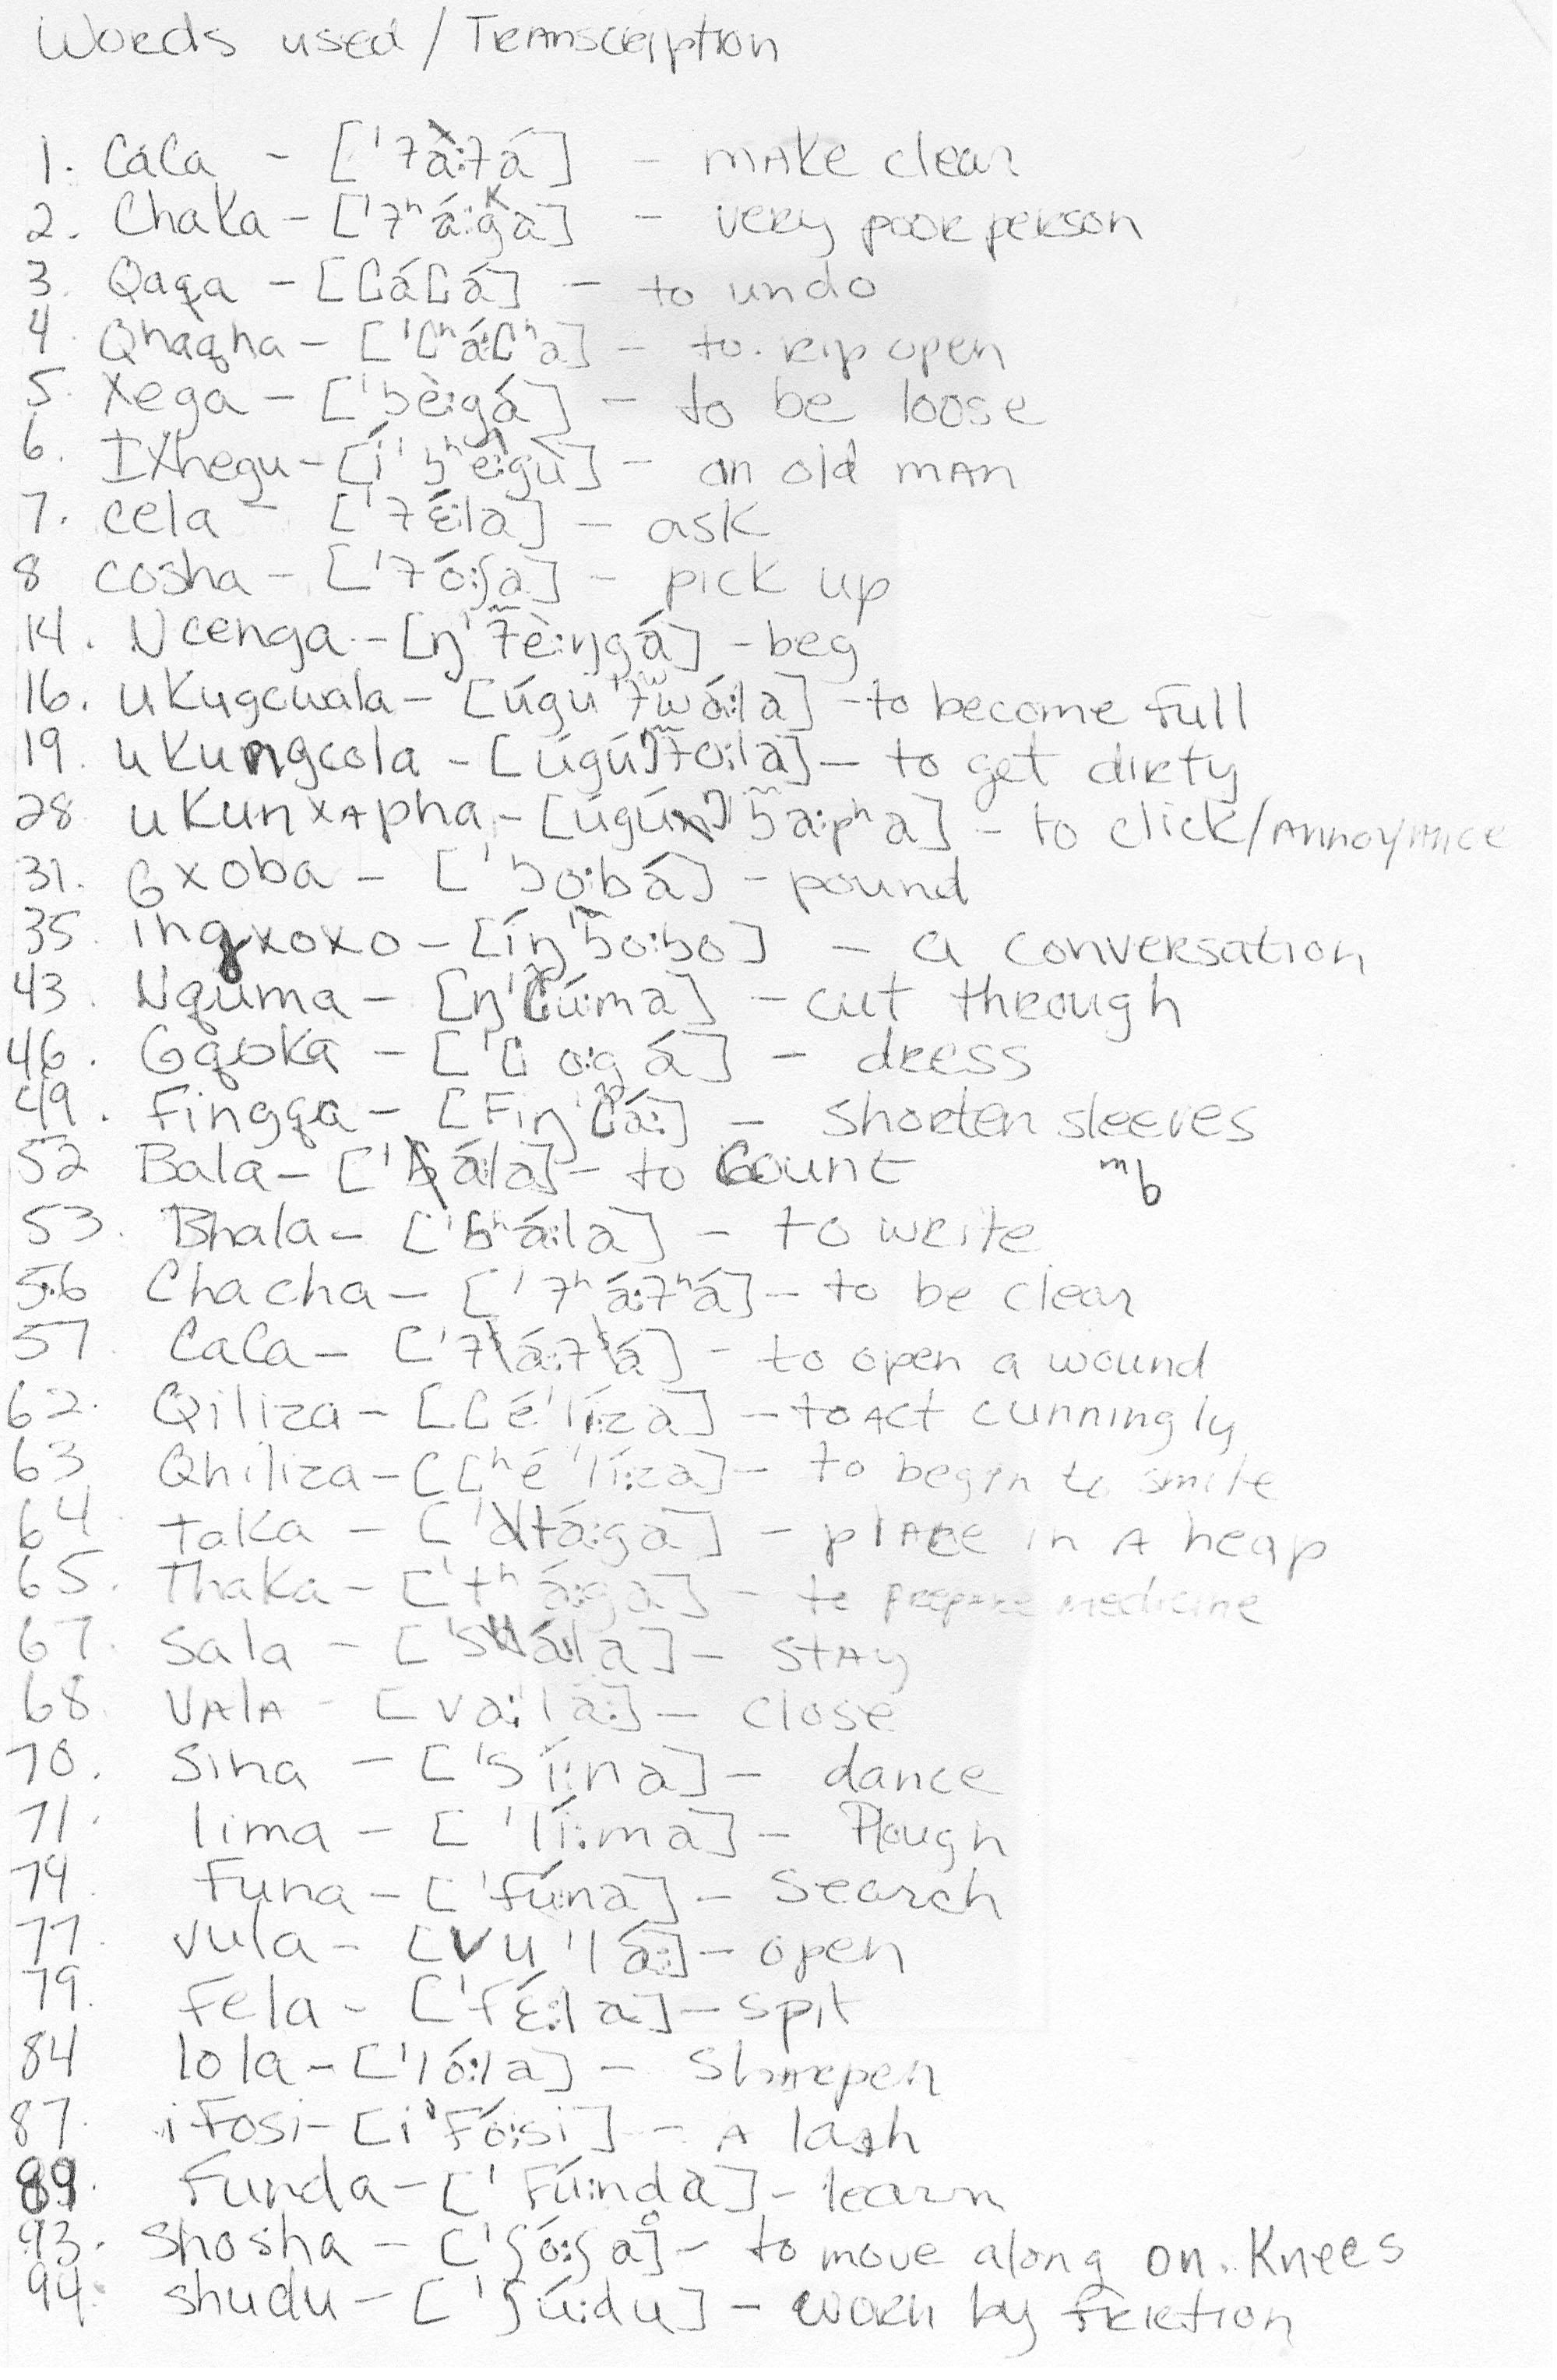 Words used / Transcription
1. CaCa - ['ʇà:ʇá] - make clear
2. Chaka - ['ʇʰá:ga] - very poor person
3. Qaqa - [ʗáʗá] - to undo
4 Qhaqha - ['ʗʰá:ʗʰa] - to rip open
5. Xega - ['ʖè:gá] - to be loose
6. IXhegu - [í'ʖʰe:gù] - an old man
7. cela - ['ʇɛ́:la] - ask
8 cosha - ['ʇó:ʃa] - pick up
14. Ncenga - [ŋ'ʇ̃è:ŋgá] - beg
16. ukugcwala - [úgu'ʇʷwá:la] - to become full
19. ukungcola - [úgúŋʇ̃o:la] - to get dirty
28 ukunxapha - [úgúŋ'ʖ̃a:pʰa] - to click/annoyance
31. Gxoba - ['ʖo:bá] - pound
35. ingxoxo - [íŋ'ʖ̃o:ʖo] - a conversation
43. Nquma - [ŋ'ʗ̃ú:ma] - cut through
46. Gqoka - ['ʗo:gá] - dress
49. Fingqa - [Fiŋ'ʗ̃á:] - shorten sleeves
52 Bala - ['ɓá:la] - to Count ᵐb
53. Bhala - ['bʰá:la] - to write
56 Chacha - ['ʇʰá:ʇʰá] - to be clear
57 CaCa - ['ʇá:ʇá] - to open a wound
62. Qiliza - [ʗé'lí:za] - to act cunningly
63 Qhiliza - [ʗʰé'lí:za] - to begin to smile
64. taka - ['tá:ga] - place in a heap
65. Thaka - ['tʰá:ga] - to prepare medicine
67. Sala - ['sá:la] - stay
68. Vala - [va:la:] - close
70. Sina - ['sí:na] - dance
71. lima - ['lí:ma] - Plough
74. Funa - ['fú:na] - search
77. vula - [vu'lá:] - open
79. Fela - ['fɛ́:la] - spit
84 lola - ['ló:la] - sharpen
87. iFosi - [i'Fó:si] - a lash
89. Funda - ['Fú:nda] - learn
93. Shosha - ['ʃó:ʃḁ] - to move along on. Knees
94. shudu - ['ʃú:du] - worn by friction